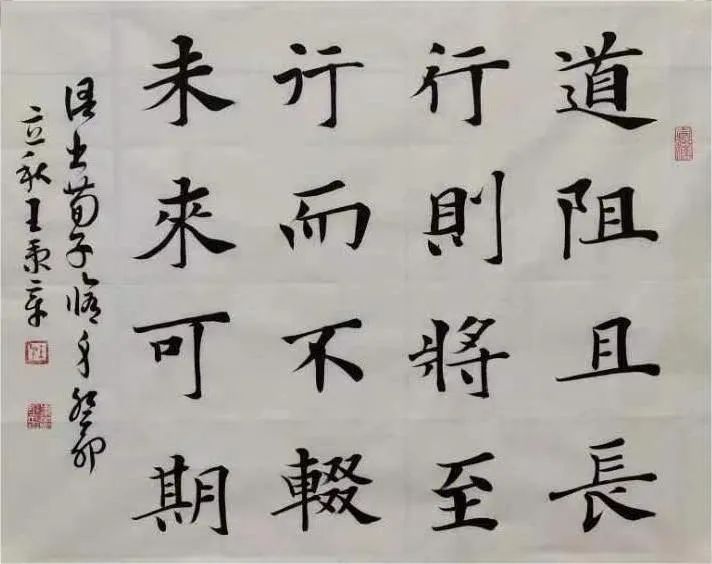 道阻且長
行則將至
行而不輟
未來可期
荀子修身癸卯
立秋王秉章